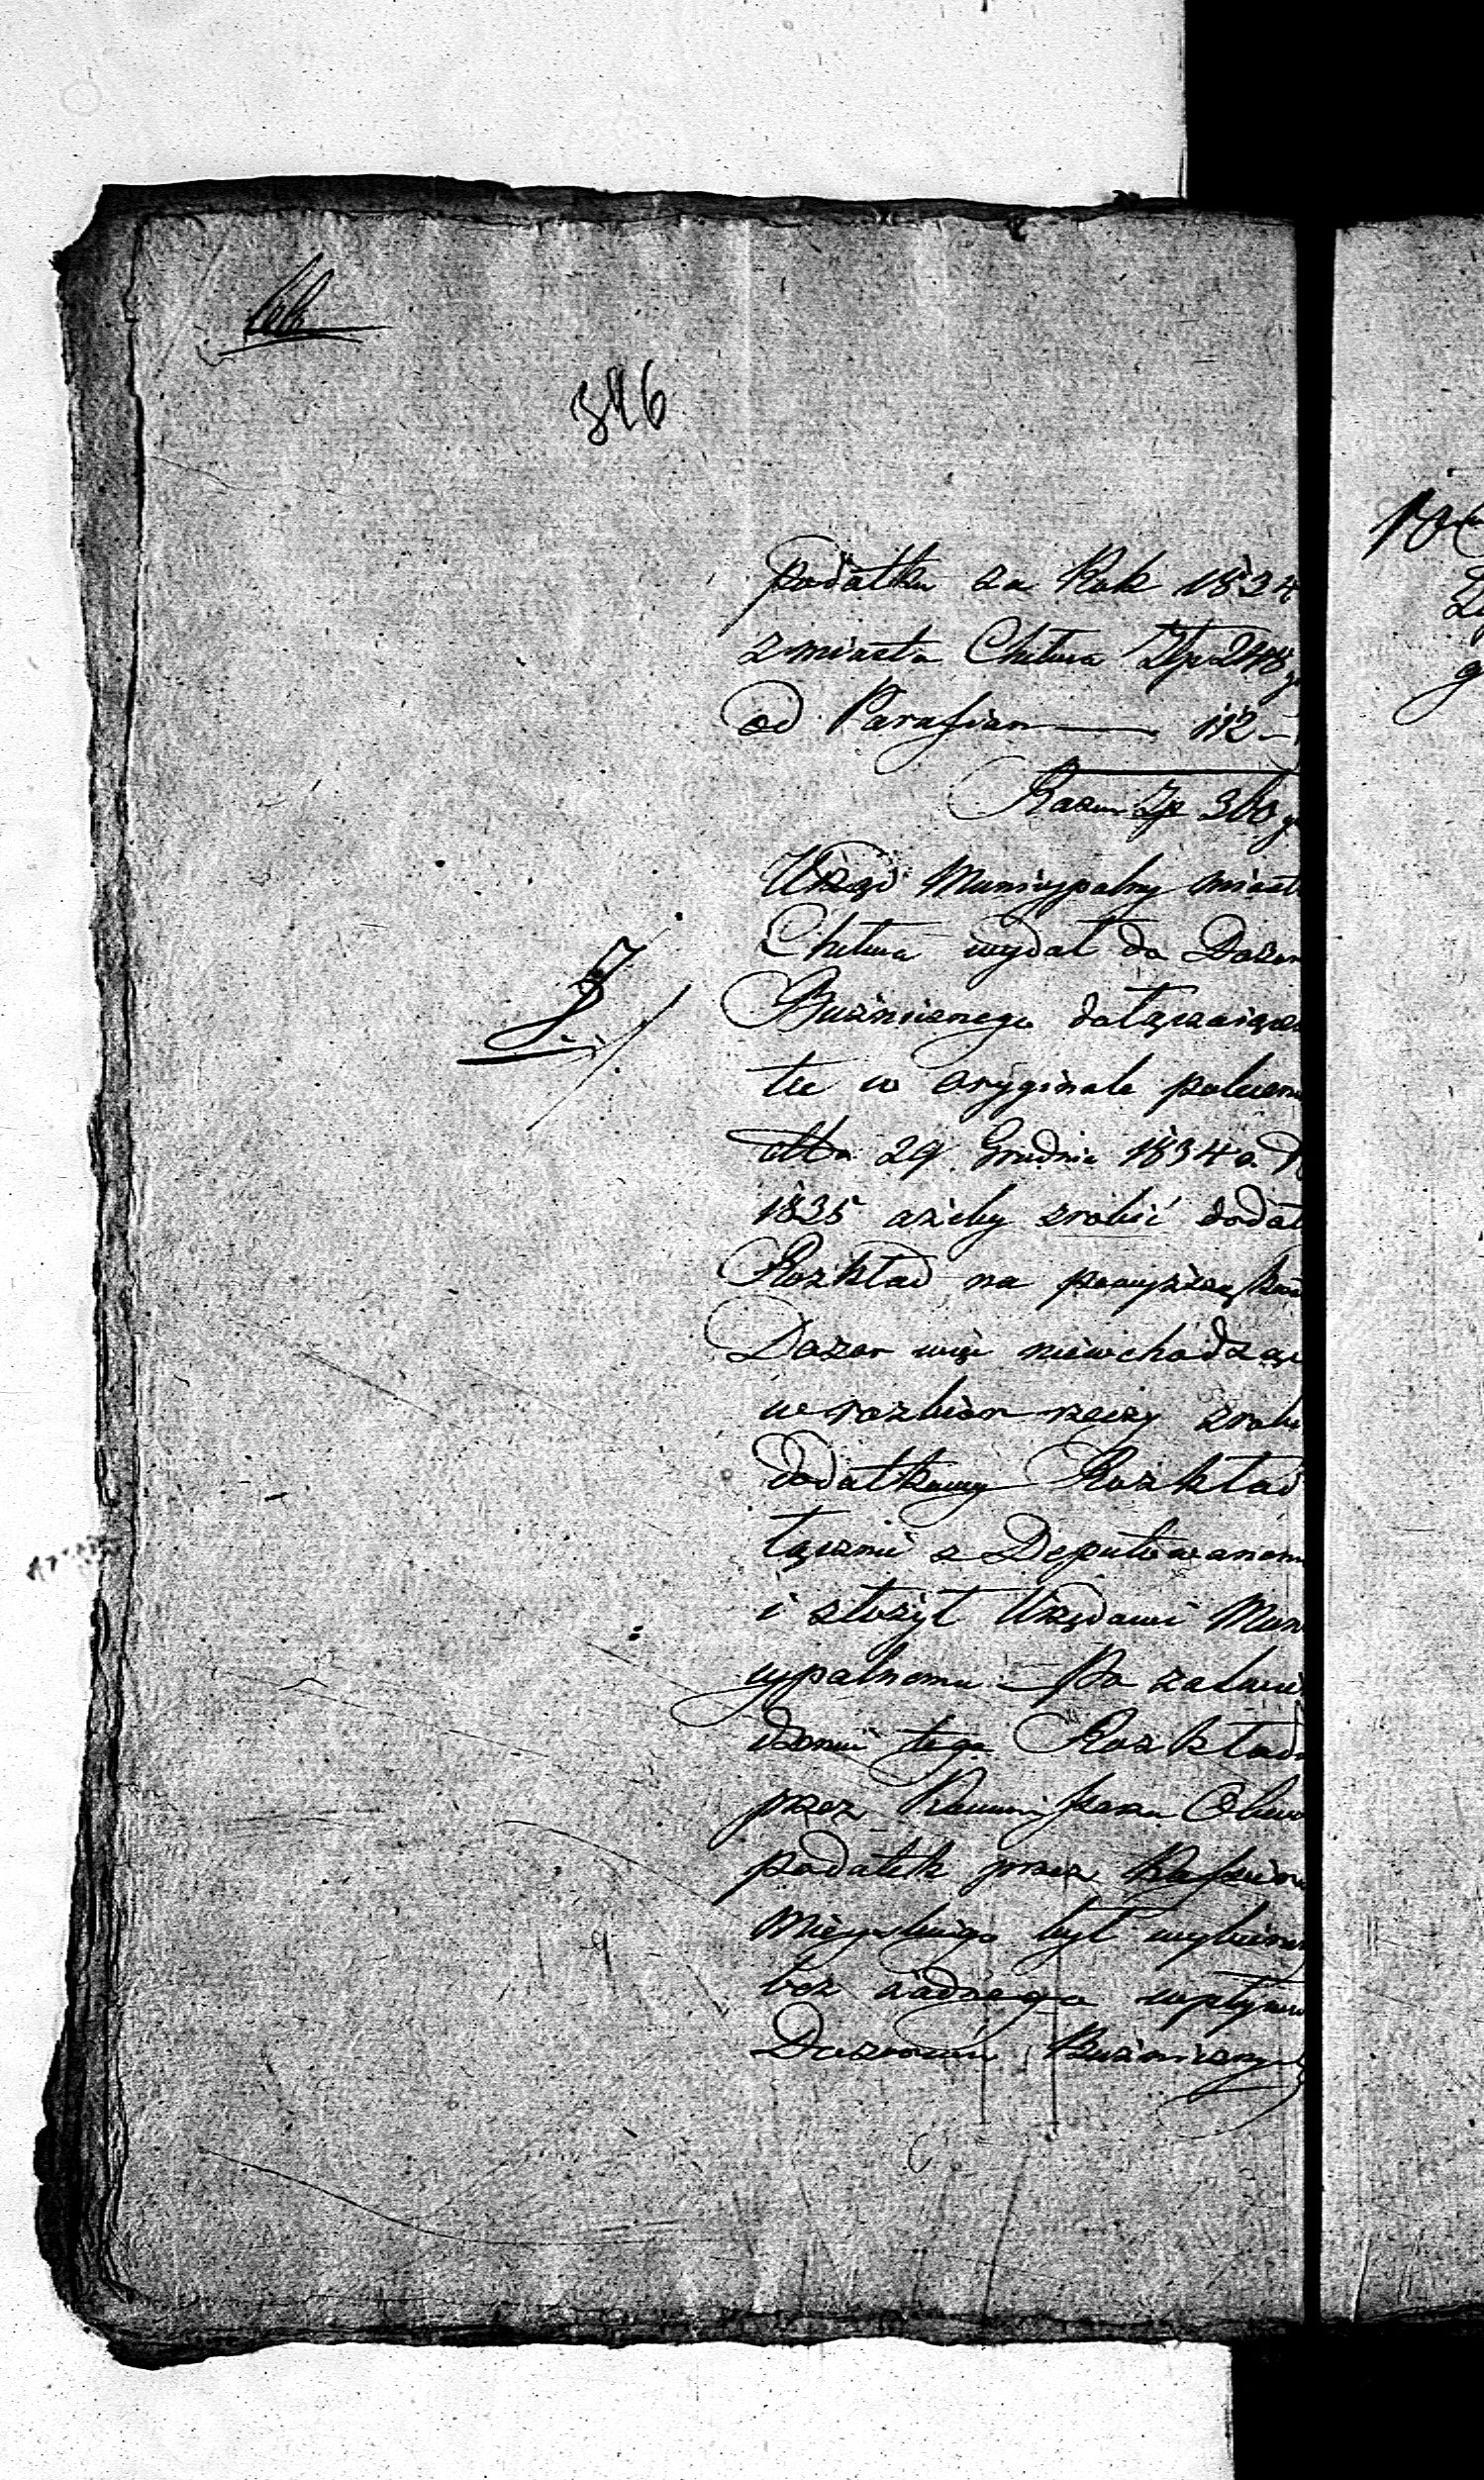 396
podatku za Rok 1824
z miasta Chełma Złp 248 g
od Parafian — 112 —
Razem Zp 360 g
Urząd Municypalny miast
Chełma wydał do Dozor
Bużniczego dołączaiące
tu w oryginale polecen
dtto 29 Grudnia 1834 a
1835 ażeby zrobić dodat
Rozkład na powyższą
Dozor więc niewchodząc
w rozbiór rzeczy zrobi
dodatkowy Rozkład
łącznie z Deputowanem
i złożył Urzędowi Mun
cypalnemu — Po zatwie
dzeniu tego Rozkładu
przez Kommissarza Obwo
podatek przez Kassiera
Mieyskiego był wybiera
bez żadnego wpływu
Dozorcow Bużniczny